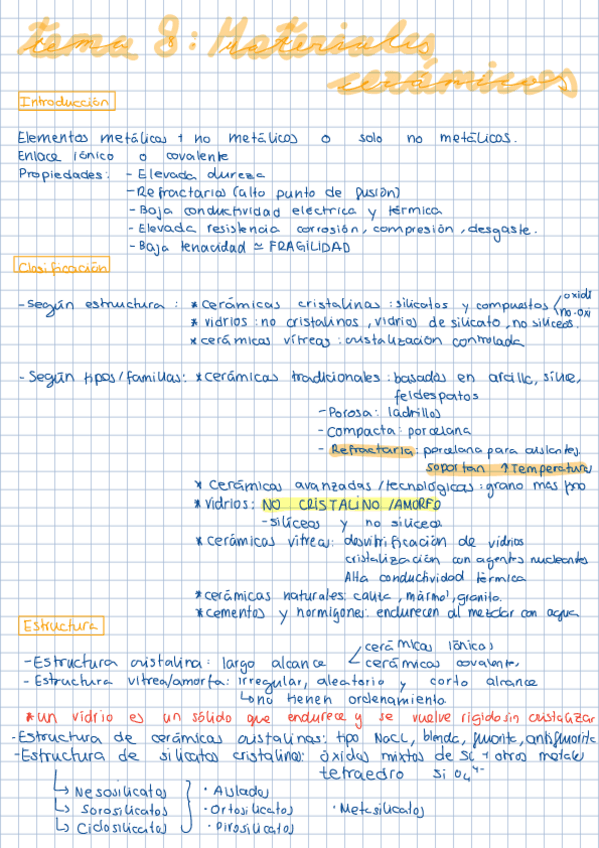 tema 8: Materiales
cerámicos
Introducción
Elementos metálicos + no metálicos o solo no metálicos.
Enlace iónico o covalente
Propiedades: - Elevada dureza
- Refractarios (alto punto de fusión)
- Baja conductividad eléctrica y térmica
- Elevada resistencia corrosión, compresión, desgaste.
- Baja tenacidad ≃ FRAGILIDAD
Clasificación
- Según estructura: * cerámicas cristalinas: silicatos y compuestos < oxidi
no-oxi
* vidrios: no cristalinos, vidrios de silicato, no silíceos.
* cerámicas vítreas: cristalización controlada
- Según tipos/familias: * cerámicas tradicionales: basadas en arcilla, sílice,
feldespatos
- Porosa: ladrillos
- Compacta: porcelana
- Refractaria: porcelana para aislantes.
soportan ↑ Temperatura
* cerámicas avanzadas/tecnológicas: grano mas fino
* vidrios: NO CRISTALINO/AMORFO
- silíceos y no silíceos
* cerámicas vitreas: desvitrificación de vidrios
cristalización con agentes nucleantes
Alta conductividad térmica
* cerámicas naturales: caliza, mármol, granito.
* cementos y hormigones: endurecen al mezclar con agua
Estructura
- Estructura cristalina: largo alcance < cerámicas iónicas
cerámicas covalentes
- Estructura vítrea/amorfa: irregular, aleatorio y corto alcance
↳ no tienen ordenamiento
* un vidrio es un sólido que endurece y se vuelve rígido sin cristalizar
- Estructura de cerámicas cristalinas: tipo NaCl, blenda, fluorita, antifluorita
- Estructura de silicatos cristalinos: óxidos mixtos de Si + otros metales
tetraedro SiO₄⁴⁻
↳ Nesosilicatos } · Aislados
↳ Sorosilicatos · Ortosilicatos · Metasilicatos
↳ Ciclosilicatos · Pirosilicatos